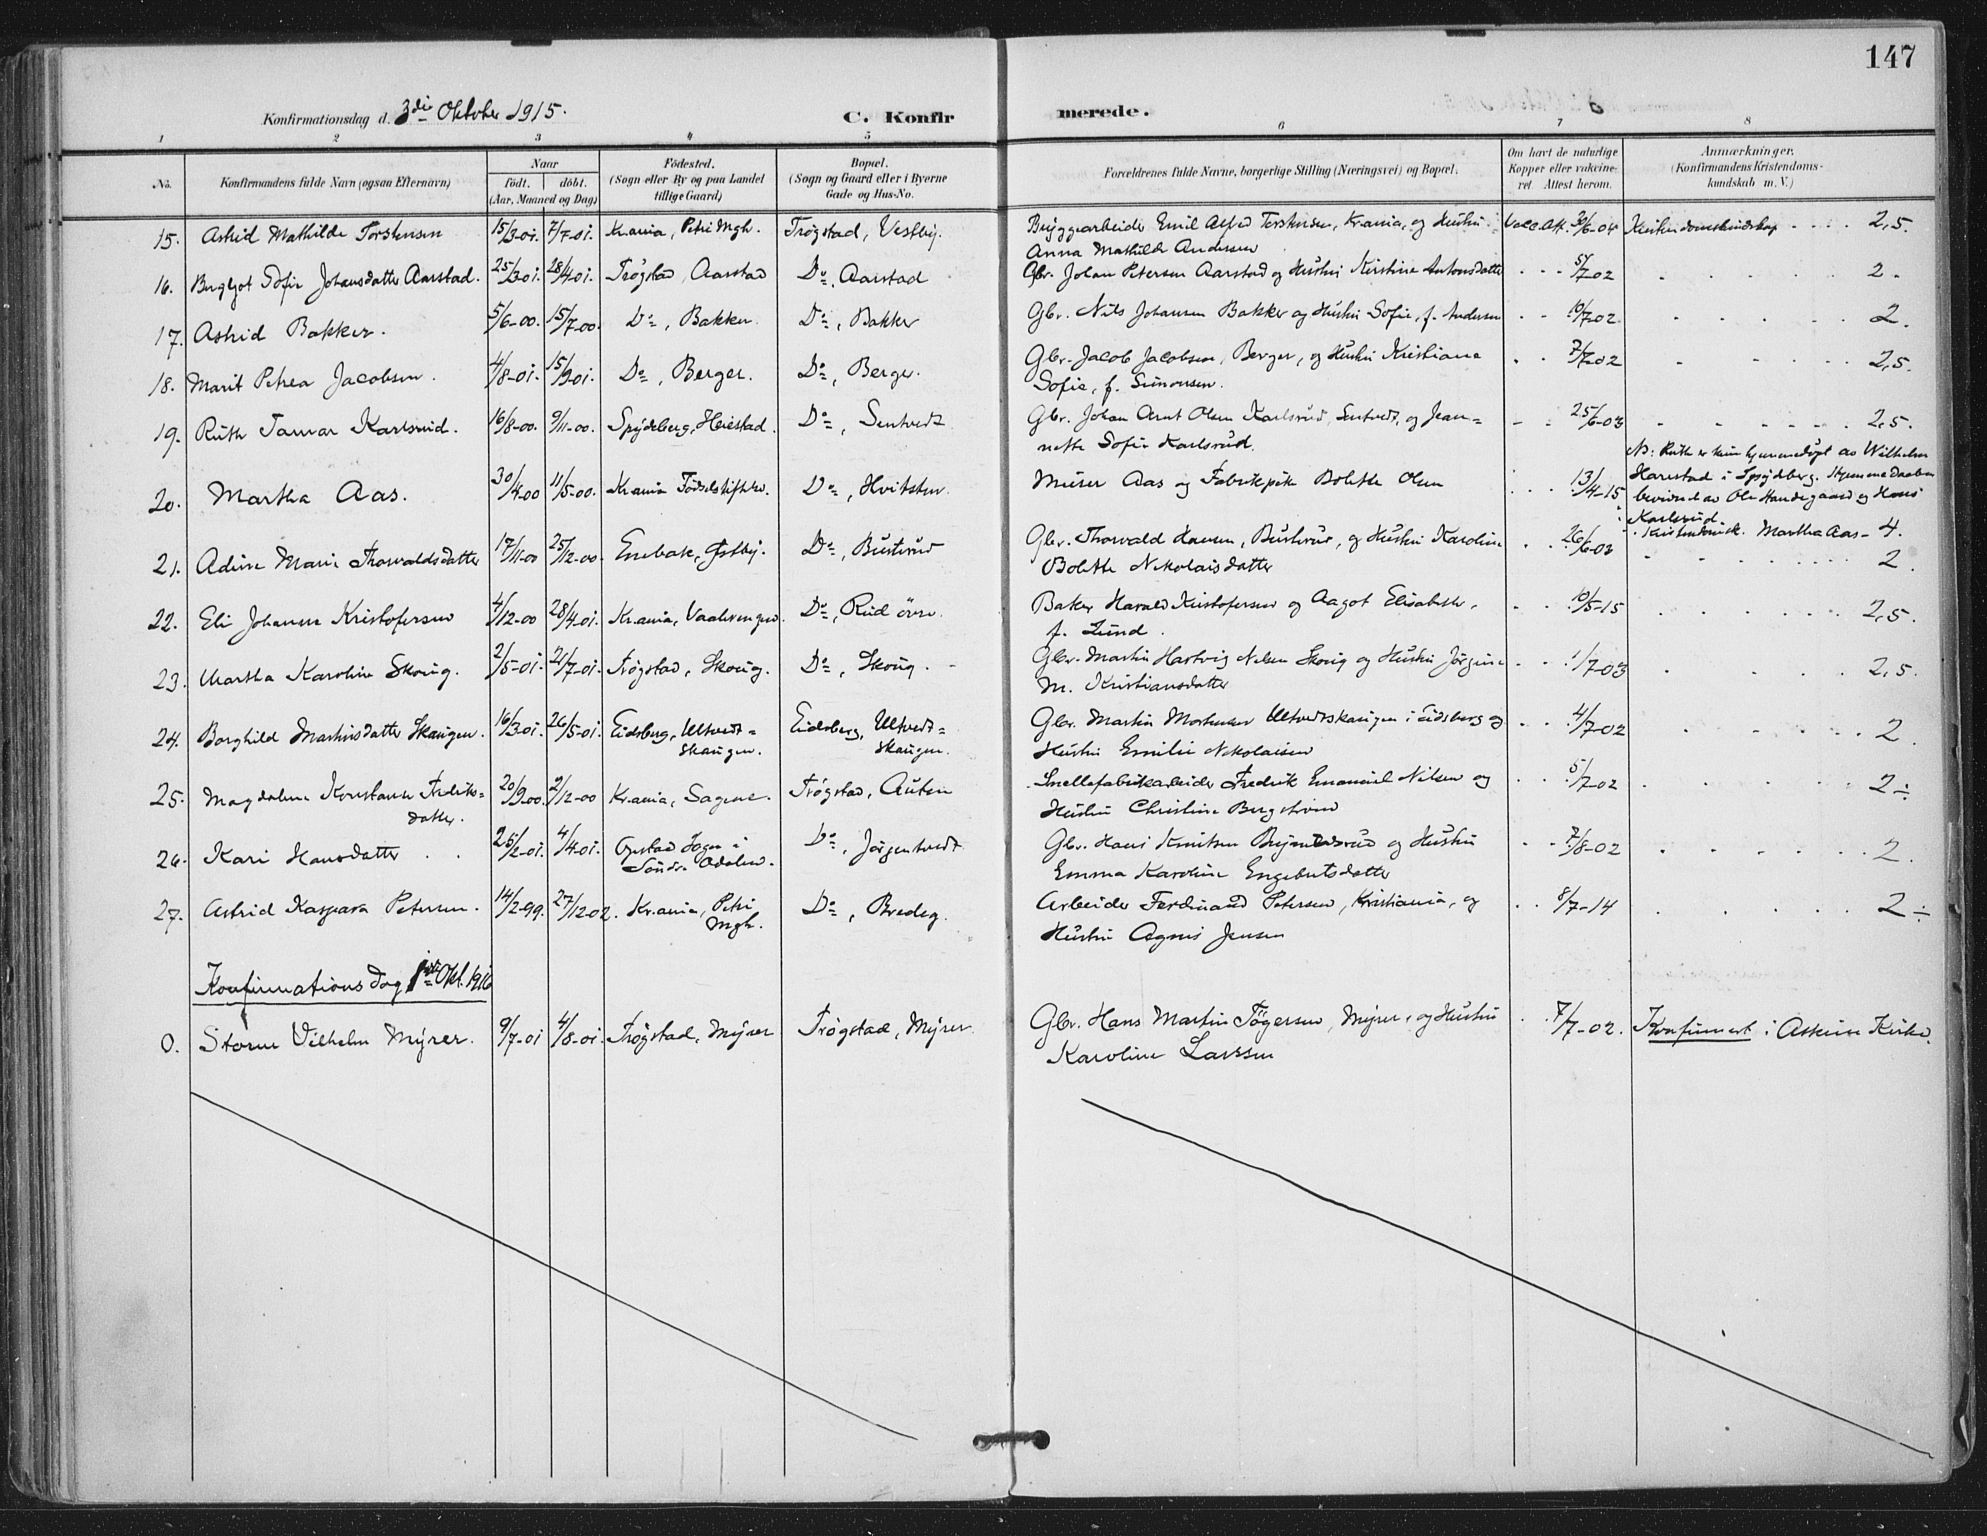 147
Konfirmationsdag d. 3die Oktober 1915. C. Konfirmerede.
1 2 3 4 5 6 7 8
No. Konfirmandens fulde Navn (ogsaa Efternavn) Naar født. døbt. (Aar, Maaned og Dag) Fødested. (Sogn eller By og paa Landet tillige Gaard) Bopæl. (Sogn og Gaard eller i Byerne Gade og Hus-No. Forældrenes fulde Navne, borgerlige Stilling (Næringsvei) og Bopæl. Om havt de naturlige Kopper eller vakcineret. Attest herom. Anmærkninger. (Konfirmandens Kristendomskundskab m. V.)
15. Astrid Mathilde Torstensen 15/3-01. 7/7-01. Kr.ania, Petri Mgh. Trøgstad, Vestby. Bryggearbeider Emil Alfred Torstensen, Kr.ania, og Hustru Vacc. Att. 30/6-04 Kristendomskundskap 2,5.
Anna Mathilde Andersen
16. Bergljot Sofie Johansdatter Aarstad. 25/3-01. 28/4-01. Trøgstad, Aarstad Do, Aarstad Gbr. Johan Petersen Aarstad og Hustru Kirstine Antonsdatter 5/7-02 2.
17. Astrid Bakker. 5/6-00. 15/7-00. Do, Bakker. Do, Bakker Gbr. Nils Johansen Bakker og Hustru Sofie, f. Andersen 10/7-02. 2.
18. Marit Petrea Jacobsen. 4/8-01. 15/9-01. Do, Berger. Do, Berger. Gbr. Jacob Jacobsen, Berger, og Hustru Kristiane 7/7-02 2,5.
Sofie, f. Simonsen.
19. Ruth Tamar Karlsrud. 16/8-00. 9/11-00. Spydeberg, Do, Sentvedt Gbr. Johan Arnt Olsen Karlsrud, Sentvedt, og Jean= 25/6-03 2,5.
nette Sofie Karlsrud.
NB: Ruth er kun hjemmedøpt av Wilhelm
20. Martha Aas. 30/4-00 11/5-00. Kr.ania Fødselstiftelse. Do, Hvitsten. Murer Aas og Fabrikpike Bolette Olsen 13/4-15 Harestad i Spydeberg. Hjemmedaaben
bevidnet av Ole Handegaard og Hans
Karlsrud.
Kristendomsk. Martha Aas - 4.
21. Adine Marie Thorvaldsdatter 17/11-00 25/12-00. Enebak, Østby. Do, Busterud Gbr. Thorvald Hansen, Busterud, og Hustru Karoline 26/6-03 2.
Bolette Nikolaisdatter
22. Eli Johanne Kristofersen 4/12-00 28/4-01. Kr.ania, Vaalerengen. Do, Rud övre. Baker Harald Kristofersen og Aagot Elisabeth, 10/5-15 2,5.
f. Lund.
23. Martha Karoline Skoug. 2/5-01. 21/7-01. Trøgstad, Skoug. Do, Skoug. Gbr. Martin Hartvig Nilsen Skoug og Hustru Jørgine 1/7-03 2,5.
M. Kristiansdatter
24. Borghild Martinsdatter Skaugen. 16/3-01. 26/5-01. Eidsberg, Ultvedt= Eidsberg, Ultvedt= Gbr. Martin Mortensen Ultvedtskaugen i Eidsberg og 4/7-02 2.
skaugen. skaugen. Hustru Emilie Nikolaisen
25. Magdalene Konstanse Fredriks= 20/9-00. 2/12-00 Kr.ania, Sagene. Trøgstad, Auten Snellefabrikarbeider Fredrik Emanuel Nilsen og 5/7-02 2÷
datter. Hustru Christine Bergstrøm
26. Kari Hansdatter 25/2-01. 4/4-01. Opstad Sogn i Do, Jørgentvedt Gbr. Hans Knutsen og Hustru 7/8-02 2.
Søndre Odalen. Emma Karoline Engebretsdatter
27. Astrid Kaspara Petersen. 14/2-99. 27/12-02. Kr.ania, Petri Do, Bredeg. Arbeider Ferdinand Petersen, Kristiania, og 8/7-14 2÷
Mgh. Hustru Agnes Jensen
Konfirmationsdag 1ste Okt. 1916
0. Storm Vilhelm Myrer. 9/7-01 4/8-01. Trøgstad, Myrer Trøgstad, Myrer. Gbr. Hans Martin Tøgersen, Myrer, og Hustru 7/7-02. Konfirmert i Askim Kirke.
Karoline Larssen